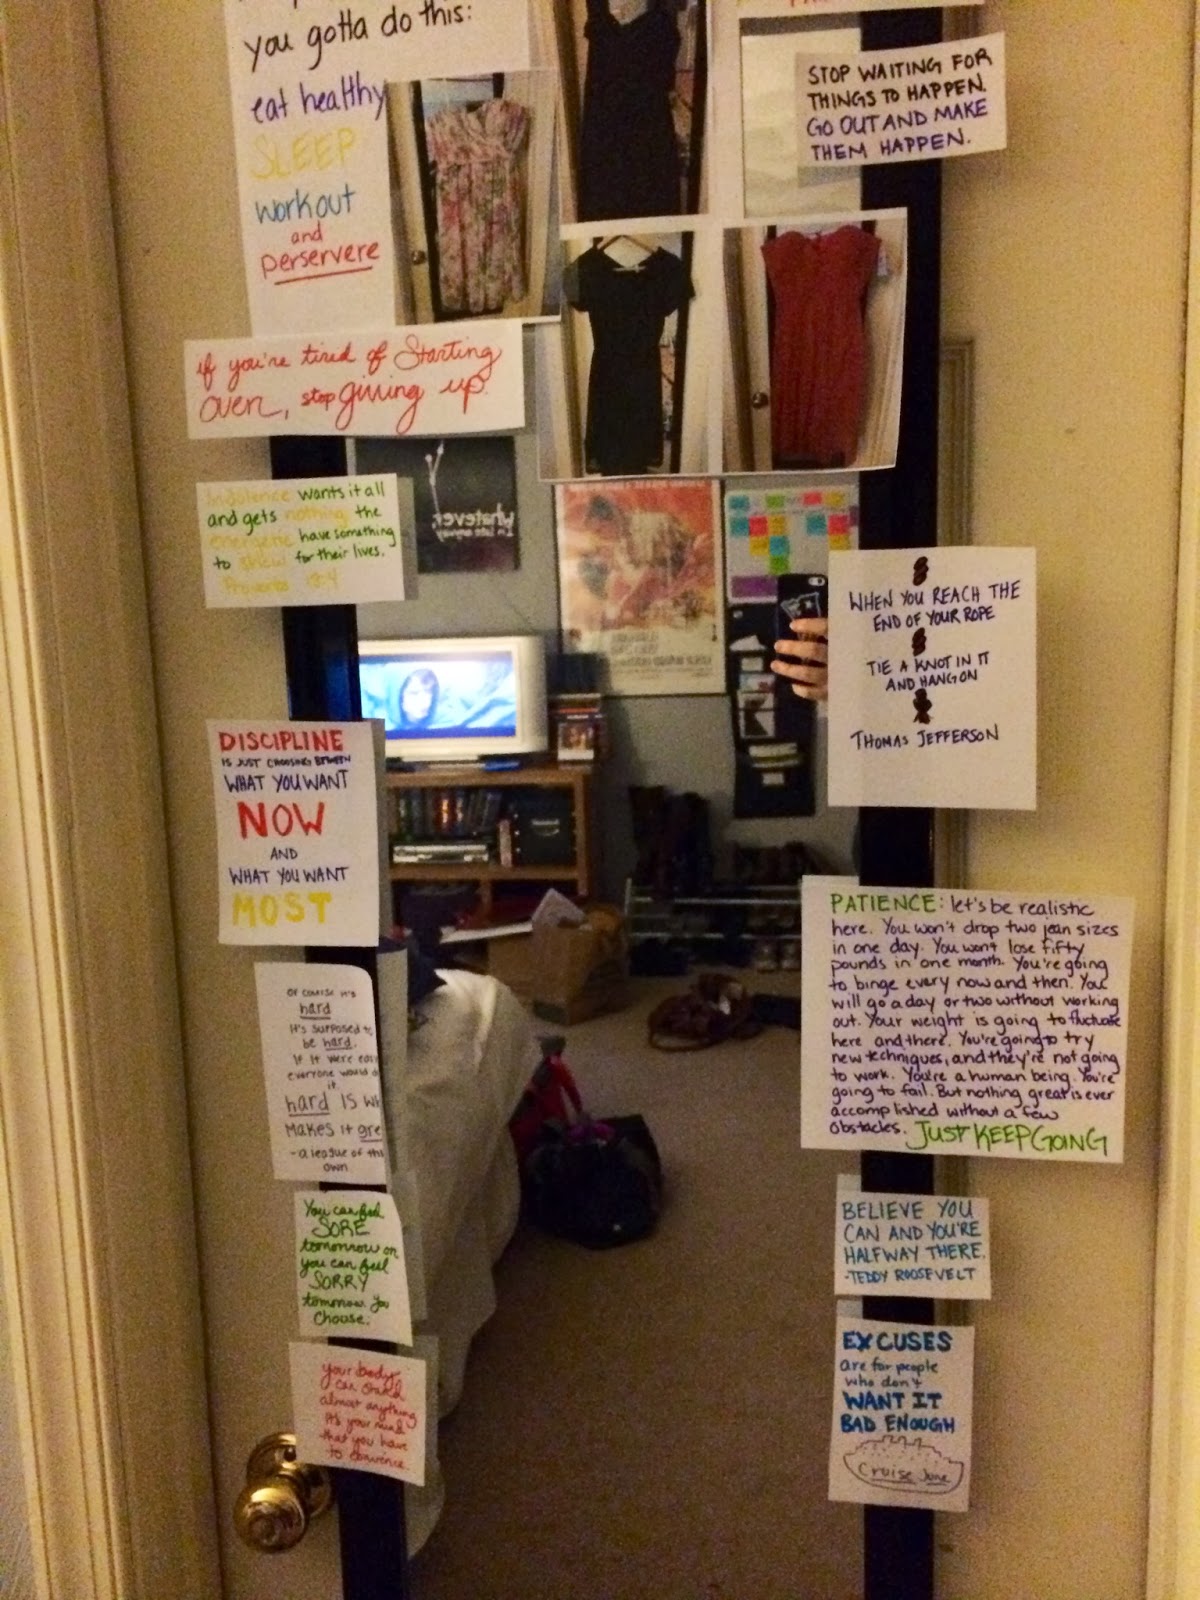 you gotta do this:
eat healthy
SLEEP
workout
and
perservere
STOP WAITING FOR
THINGS TO HAPPEN.
GO OUT AND MAKE
THEM HAPPEN.
if you're tired of starting
over, stop giving up.
Indolence wants it all
and gets nothing the
energetic have something
to show for their lives.
Proverbs 13:4
whatever,
I'm late anyway
WHEN YOU REACH THE
END OF YOUR ROPE
TIE A KNOT IN IT
AND HANG ON
THOMAS JEFFERSON
DISCIPLINE
IS JUST CHOOSING BETWEEN
WHAT YOU WANT
NOW
AND
WHAT YOU WANT
MOST
PATIENCE: let's be realistic
here. You won't drop two jean sizes
in one day. You won't lose fifty
pounds in one month. You're going
to binge every now and then. You
will go a day or two without working
out. Your weight is going to fluctuate
here and there. You're going to try
new techniques, and they're not going
to work. You're a human being. You're
going to fail. But nothing great is ever
accomplished without a few
obstacles. JUST KEEP GOING
OF COURSE IT'S
hard
It's supposed to
be hard.
If it were easy
everyone would do
it.
hard IS wh
Makes it gre
- a league of the
own
You can feel
SORE
tomorrow or
you can feel
SORRY
tomorrow. You
choose.
your body
can stand
almost anything
It's your mind
that you have
to convince.
BELIEVE YOU
CAN AND YOU'RE
HALFWAY THERE.
-TEDDY ROOSEVELT
EXCUSES
are for people
who don't
WANT IT
BAD ENOUGH
Cruise June